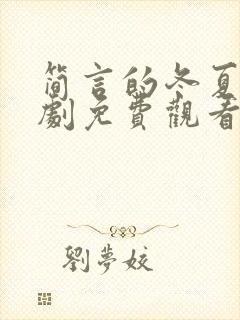 簡言的冬夏
劇免費觀看
劉夢姣